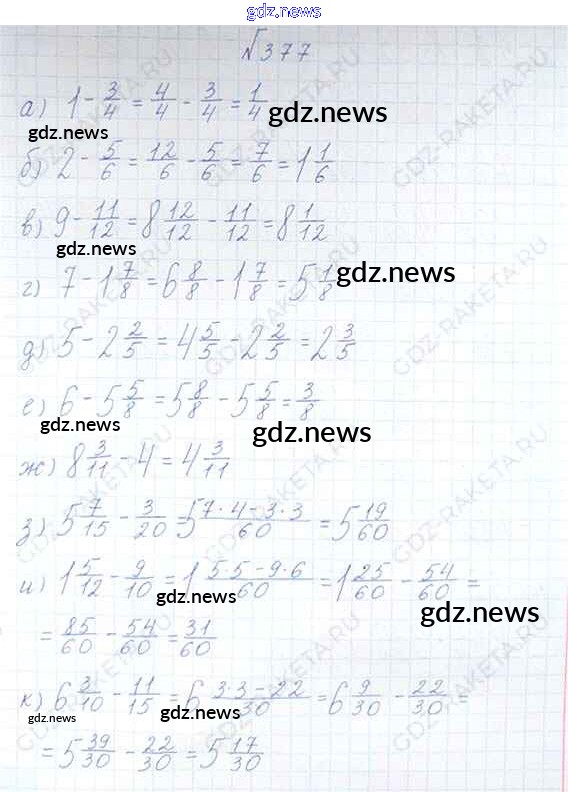 gdz.news
gdz.news
№377
а) 1 - 3/4 = 4/4 - 3/4 = 1/4
gdz.news
gdz.news
б) 2 - 5/6 = 12/6 - 5/6 = 7/6 = 1 1/6
в) 9 - 11/12 = 8 12/12 - 11/12 = 8 1/12
gdz.news
г) 7 - 1 7/8 = 6 8/8 - 1 7/8 = 5 1/8
gdz.news
д) 5 - 2 2/5 = 4 5/5 - 2 2/5 = 2 3/5
е) 6 - 5 5/8 = 5 8/8 - 5 5/8 = 3/8
gdz.news
gdz.news
ж) 8 3/11 - 4 = 4 3/11
з) 5 7/15 - 3/20 = 5 (7·4-3·3)/60 = 5 19/60
и) 1 5/12 - 9/10 = 1 (5·5-9·6)/60 = 1 25/60 - 54/60 =
gdz.news
gdz.news
= 85/60 - 54/60 = 31/60
к) 6 3/10 - 11/15 = 6 (3·3-22)/30 = 6 9/30 - 22/30 =
gdz.news
gdz.news
= 5 39/30 - 22/30 = 5 17/30
GDZ-RAKETA.RU